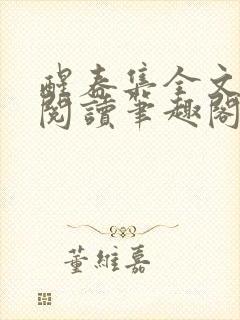 醒春集全文
閱讀筆趣閣
董維嘉